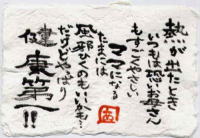 熱が出たとき
いつもは恐いお母さん
もすごくやさしい
ママになる
たまには
風邪ひくのもいいかも…
だけどやっぱり
健康第一!!